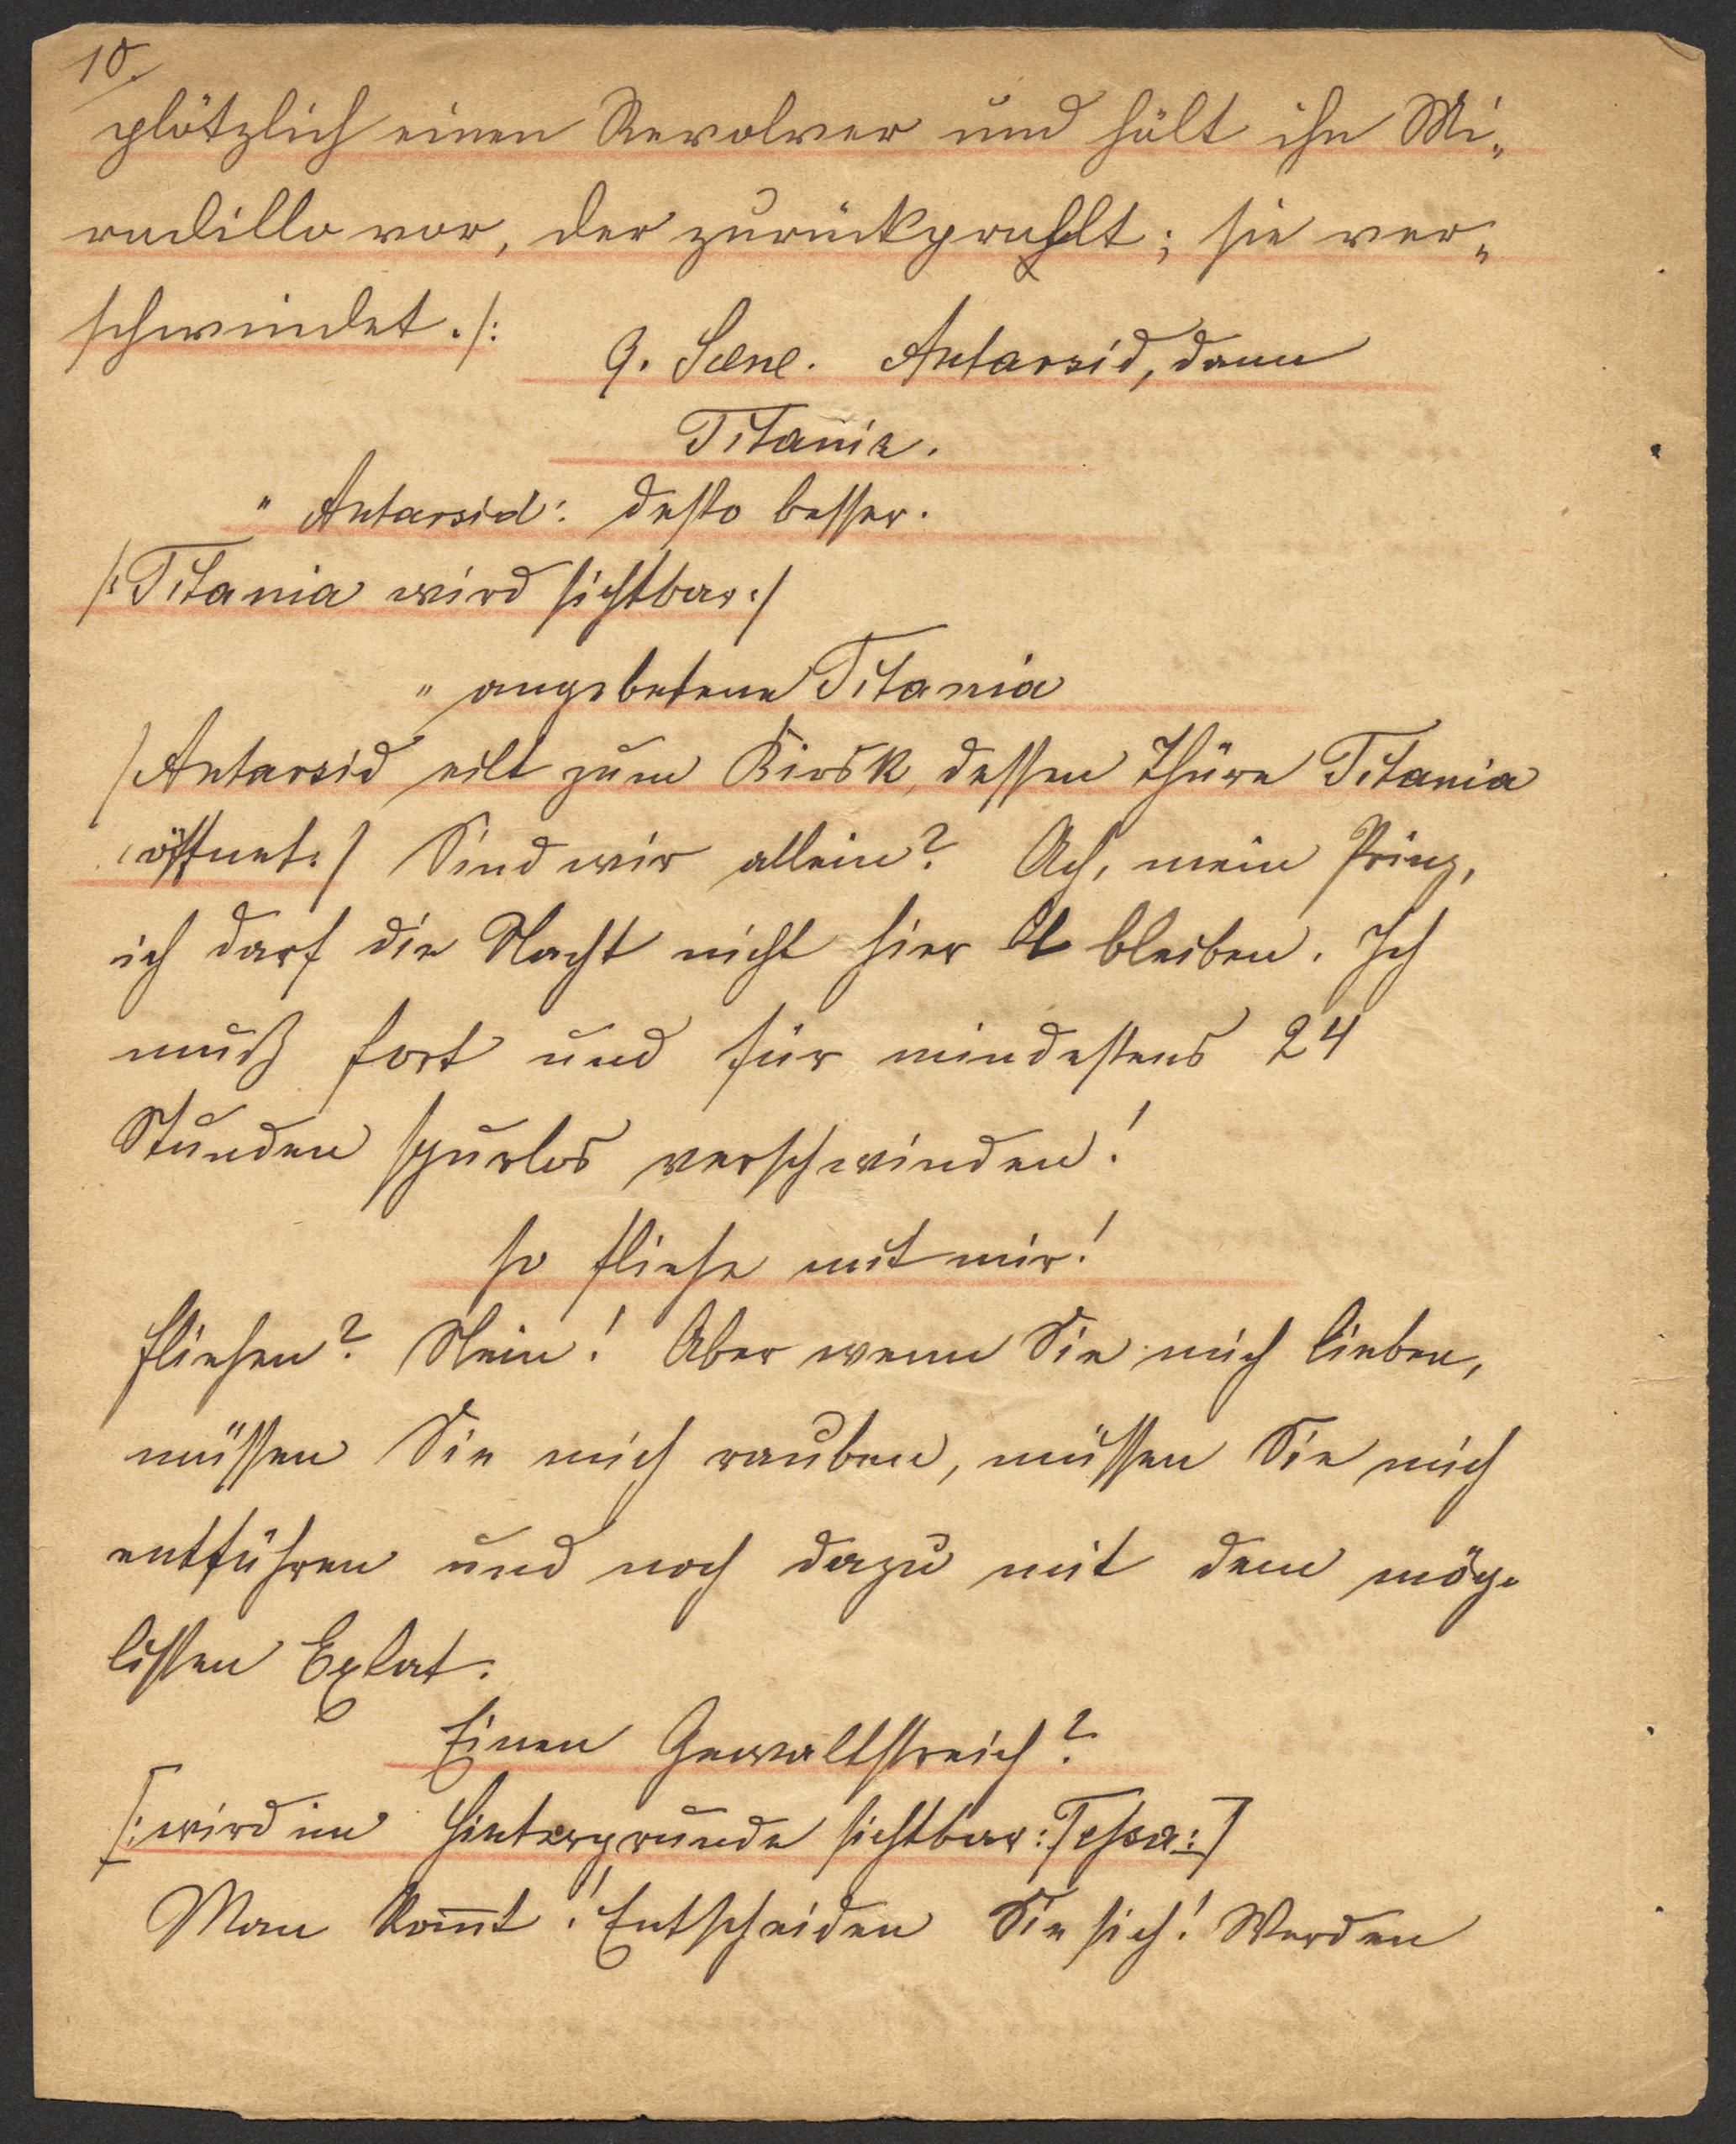 10.
plötzlich einen Revolver und hält ihn Mi„
radillo vor, der zurückprahlt; sie ver„
schwindet./:
9. Scene. Antarsid, dann
Titania.
" Antarsid: desto besser.
/:Titania wird sichtbar:/
" angebetene Titania
/Antarsid eilt zum Kiosk, dessen Thüre Titania
öffnet:/ Sind wir allein? Ach, mein Prinz,
ich darf die Nacht nicht hier bleiben. Ich
muß fort und für mindestens 24
Stunden spurlos verschwinden!
so fliehe mit mir!
fliehen? Nein! Aber wenn Sie mich lieben,
müssen Sie mich rauben, müssen Sie mich
entführen und noch dazu mit dem mög„
lichsten Eklat.
Einen Gewaltstreich?
[:wird im Hintergrunde sichtbar:/Tessa:]
Man kom̅t! Entscheiden Sie sich! Werden